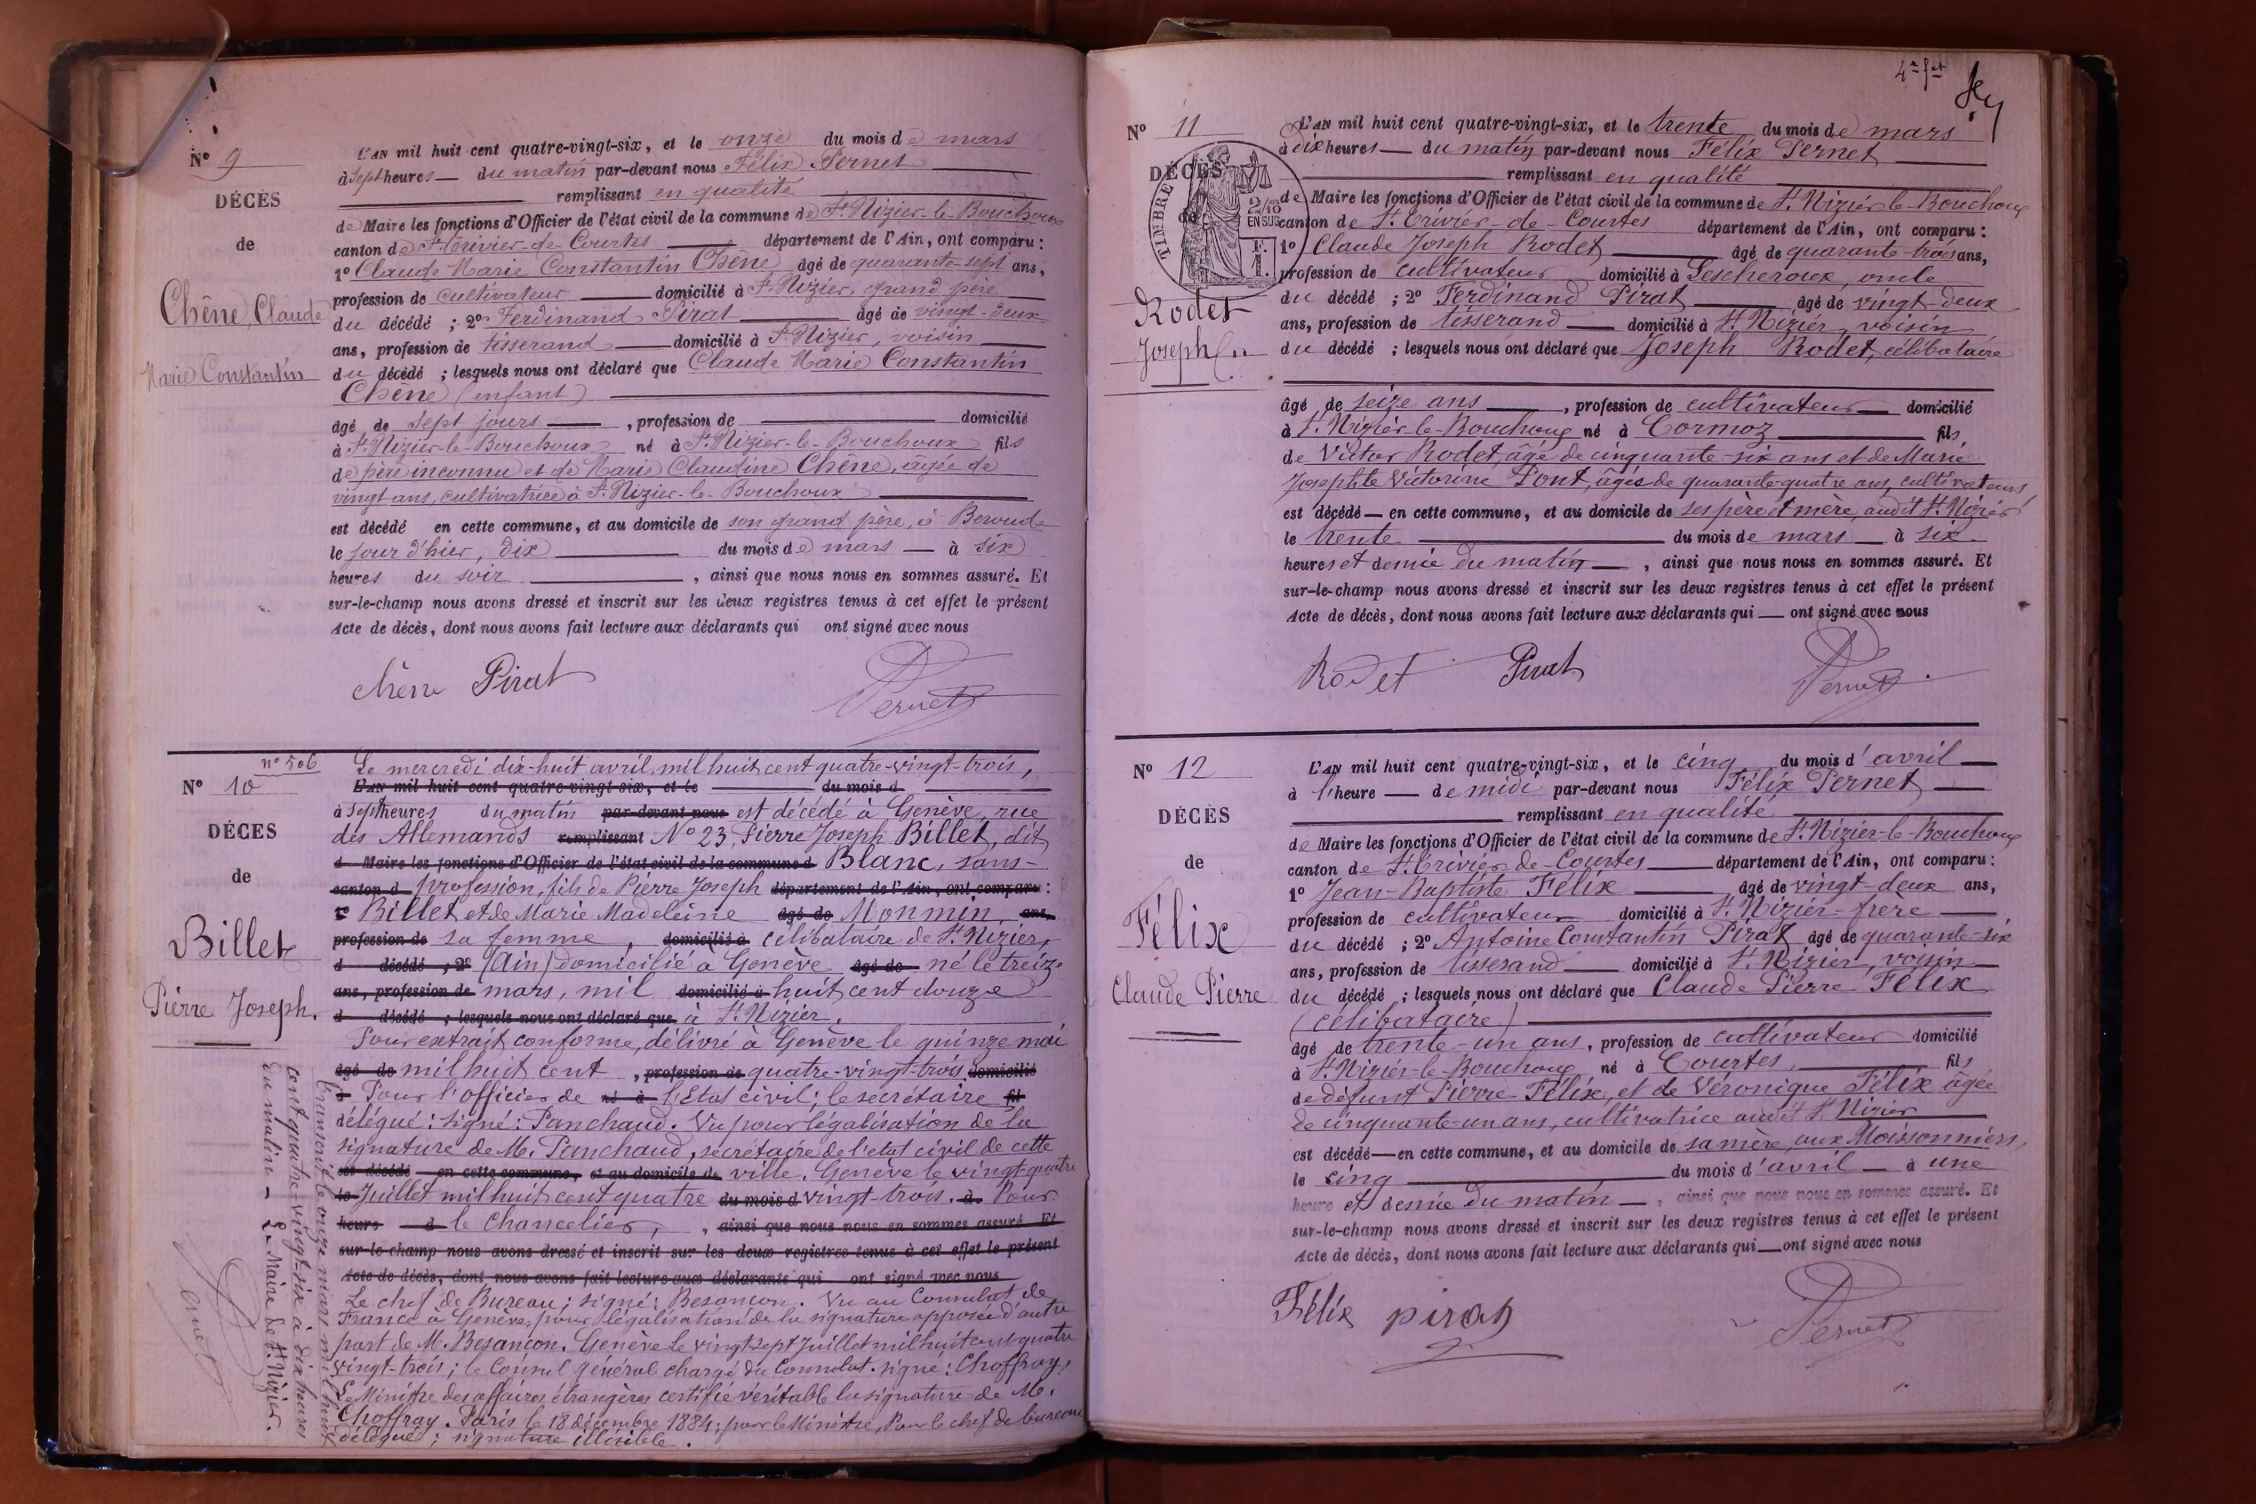 Nº 9
DÉCÈS
de
Chêne, Claude
Marie Constantin
L'AN mil huit cent quatre-vingt-six, et le onze du mois de mars
à sept heures du matin par-devant nous Félix Pernet
remplissant en qualité
de Maire les fonctions d'Officier de l'état civil de la commune de St Nizier-le-Bouchoux
canton de St Trivier-de-Courtes département de l'Ain, ont comparu :
1º Claude Marie Constantin Chêne âgé de quarante-sept ans,
profession de cultivateur domicilié à St Nizier, grand père
du décédé ; 2º Ferdinand Pirat âgé de vingt-deux
ans, profession de tisserand domicilié à St Nizier, voisin
du décédé ; lesquels nous ont déclaré que Claude Marie Constantin
Chêne (enfant)
âgé de sept jours , profession de domicilié
à St Nizier-le-Bouchoux né à St Nizier-le-Bouchoux fils
de père inconnu et de Marie Claudine Chêne, âgée de
vingt ans, cultivatrice à St Nizier-le-Bouchoux
est décédé en cette commune, et au domicile de son grand père, à
le jour d'hier, dix du mois de mars à six
heures du soir , ainsi que nous nous en sommes assuré. Et
sur-le-champ nous avons dressé et inscrit sur les deux registres tenus à cet effet le présent
Acte de décès, dont nous avons fait lecture aux déclarants qui ont signé avec nous
chêne Pirat Pernet
nº 506
Nº 10
DÉCES
de
Billet
Pierre Joseph.
Le mercredi dix-huit avril, mil huit cent quatre-vingt-trois,
L'AN mil huit cent quatre-vingt-six, et le du mois d
à sept heures du matin par-devant nous est décédé à Genève, rue
des Allemands remplissant Nº 23, Pierre Joseph Billet, dit
d Maire les fonctions d'Officier de l'état civil de la commune d Blanc, sans-
canton d profession, fils de Pierre Joseph département de l'Ain, ont comparu :
1º Billet et de Marie Madeleine âgé de Monmin, ans,
profession de sa femme, domicilié à célibataire de St Nizier,
d décédé ; 2º (Ain) domicilié à Genève âgé de né le treize
ans, profession de mars, mil domicilié à huit cent douze
d décédé ; lesquels nous ont déclaré que à St Nizier.
Pour extrait conforme, délivré à Genève le quinze mai
âgé de mil huit cent , profession de quatre-vingt-trois domicilié
à Pour l'officier de né à l'Etat civil ; le secrétaire fil
délégué : signé : Panchaud. Vu pour légalisation de la
signature de M. Panchaud, secrétaire de l'état civil de cette
est décédé en cette commune, et au domicile de ville. Genève le vingt-quatre
le Juillet mil huit cent quatre du mois d vingt-trois. à Pour
heure d le Chancelier, , ainsi que nous nous en sommes assuré. Et
sur-le-champ nous avons dressé et inscrit sur les deux registres tenus à cet effet le présent
Acte de décès, dont nous avons fait lecture aux déclarants qui ont signé avec nous
Le chef de Bureau ; signé : Besançon. Vu au Consulat de
France à Genève, pour légalisation de la signature apposée d'autre
part de M. Besançon. Genève le vingt sept Juillet mil huit cent quatre
vingt-trois ; le Consul général chargé du Consulat. signé : Choffray,
Le Ministre des affaires étrangères certifie véritable la signature de M.
Choffray. Paris le 18 décembre 1884 ; pour le Ministre, Pour le chef de bureau
délégué ; signature illisible.
Transcrit le onze mars mil huit
cent quatre-vingt-six à dix heures
du matin - Le Maire de St Nizier.
Pernet
4e ft
Nº 11
DÉCÈS
de
TIMBRE
2/10
EN SUS
Rodet
Joseph
L'AN mil huit cent quatre-vingt-six, et le trente du mois de mars
à dix heures du matin par-devant nous Félix Pernet
remplissant en qualité
de Maire les fonctions d'Officier de l'état civil de la commune de St Nizier-le-Bouchoux
canton de St Trivier-de-Courtes département de l'Ain, ont comparu :
1º Claude Joseph Rodet âgé de quarante-trois ans,
profession de cultivateur domicilié à Lescheroux, oncle
du décédé ; 2º Ferdinand Pirat âgé de vingt-deux
ans, profession de tisserand domicilié à St Nizier, voisin
du décédé ; lesquels nous ont déclaré que Joseph Rodet, célibataire
âgé de seize ans , profession de cultivateur domicilié
à St Nizier-le-Bouchoux né à Cormoz fils
de Victor Rodet, âgé de cinquante-six ans et de Marie
Josephte Victorine Pont, âgée de quarante quatre ans, cultivateurs
est décédé en cette commune, et au domicile de ses père et mère, audit St Nizier
le trente du mois de mars à six
heures et demie du matin , ainsi que nous nous en sommes assuré. Et
sur-le-champ nous avons dressé et inscrit sur les deux registres tenus à cet effet le présent
Acte de décès, dont nous avons fait lecture aux déclarants qui ont signé avec nous
Rodet Pirat Pernet
Nº 12
DÉCÈS
de
Félix
Claude Pierre
L'AN mil huit cent quatre-vingt-six, et le cinq du mois d'avril
à l'heure de midi par-devant nous Félix Pernet
remplissant en qualité
de Maire les fonctions d'Officier de l'état civil de la commune de St Nizier-le-Bouchoux
canton de St Trivier-de-Courtes département de l'Ain, ont comparu :
1º Jean-Baptiste Félix âgé de vingt-deux ans,
profession de cultivateur domicilié à St Nizier - frère
du décédé ; 2º Antoine Constantin Pirat âgé de quarante-six
ans, profession de tisserand domicilié à St Nizier, voisin
du décédé ; lesquels nous ont déclaré que Claude Pierre Félix
(célibataire)
âgé de trente-un ans , profession de cultivateur domicilié
à St Nizier-le-Bouchoux né à Courtes, fils
de défunt Pierre Félix, et de Véronique Félix âgée
de cinquante-un ans, cultivatrice audit St Nizier
est décédé en cette commune, et au domicile de sa mère, aux Moissonniers,
le cinq du mois d'avril à une
heure et demie du matin , ainsi que nous nous en sommes assuré. Et
sur-le-champ nous avons dressé et inscrit sur les deux registres tenus à cet effet le présent
Acte de décès, dont nous avons fait lecture aux déclarants qui ont signé avec nous
Félix pirat Pernet